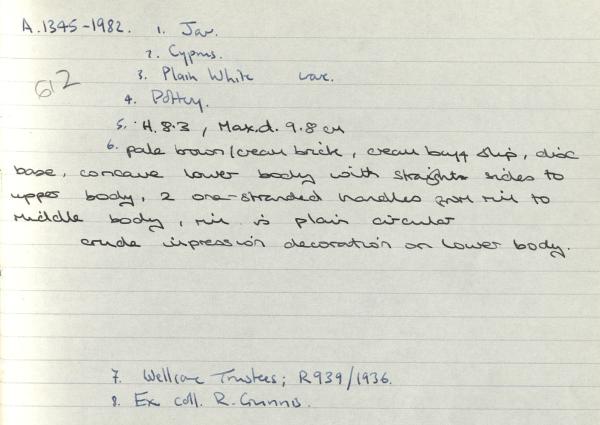 A.1345-1982. 1. Jar.
2. Cyprus.
3. Plain White ware.
612
4. Pottery.
5. H. 8.3, Max.d. 9.8 cm
6. pale brown/cream brick, cream buff slip, disc
base, concave lower body with straight sides to
upper body, 2 one-stranded handles from rim to
middle body, rim is plain circular
crude impression decoration on lower body.
7. Wellcome Trustees; R939/1936.
8. Ex coll. R. Gunnis.